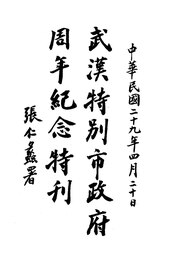 中華民國二十九年四月二十日
武漢特別市政府
周年紀念特刊
張仁蠡署